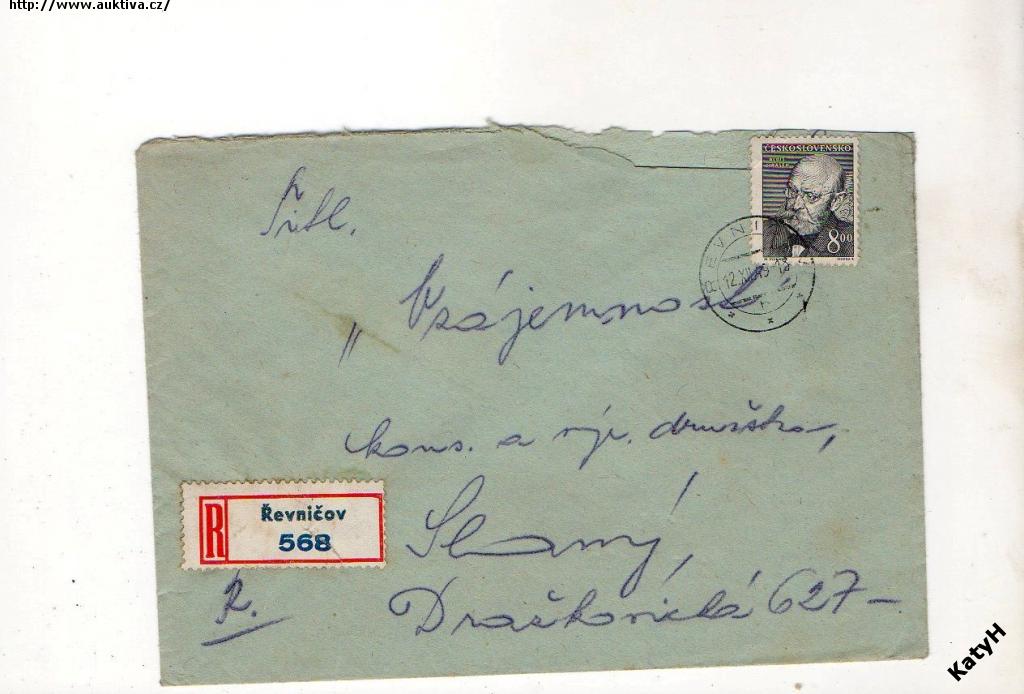 http://www.auktiva.cz/
ČESKOSLOVENSKO
ALOIS
JIRÁSEK
8 00
12.XII.49-18
Titl.
„Vzájemnost"
kons. a výr. družstvo,
Slaný,
Draškovická 627-
R
Řevničov
568
R.
KatyH